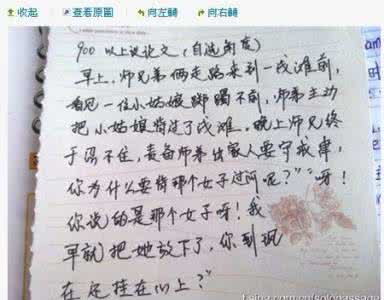 收起 查看原圖 向左轉 向右轉
900 以上议论文(自选角度)
早上,师兄弟俩走路来到一浅滩前,
看见一位小姑娘踟蹰不前,师弟主动
把小姑娘背过了浅滩。晚上师兄终
于忍不住,责备师弟出家人要守戒律,
你为什么要背那个女子过河呢?""呀!
你说的是那个女子呀!我
早就把她放下了,你到现
在还挂在心上?"